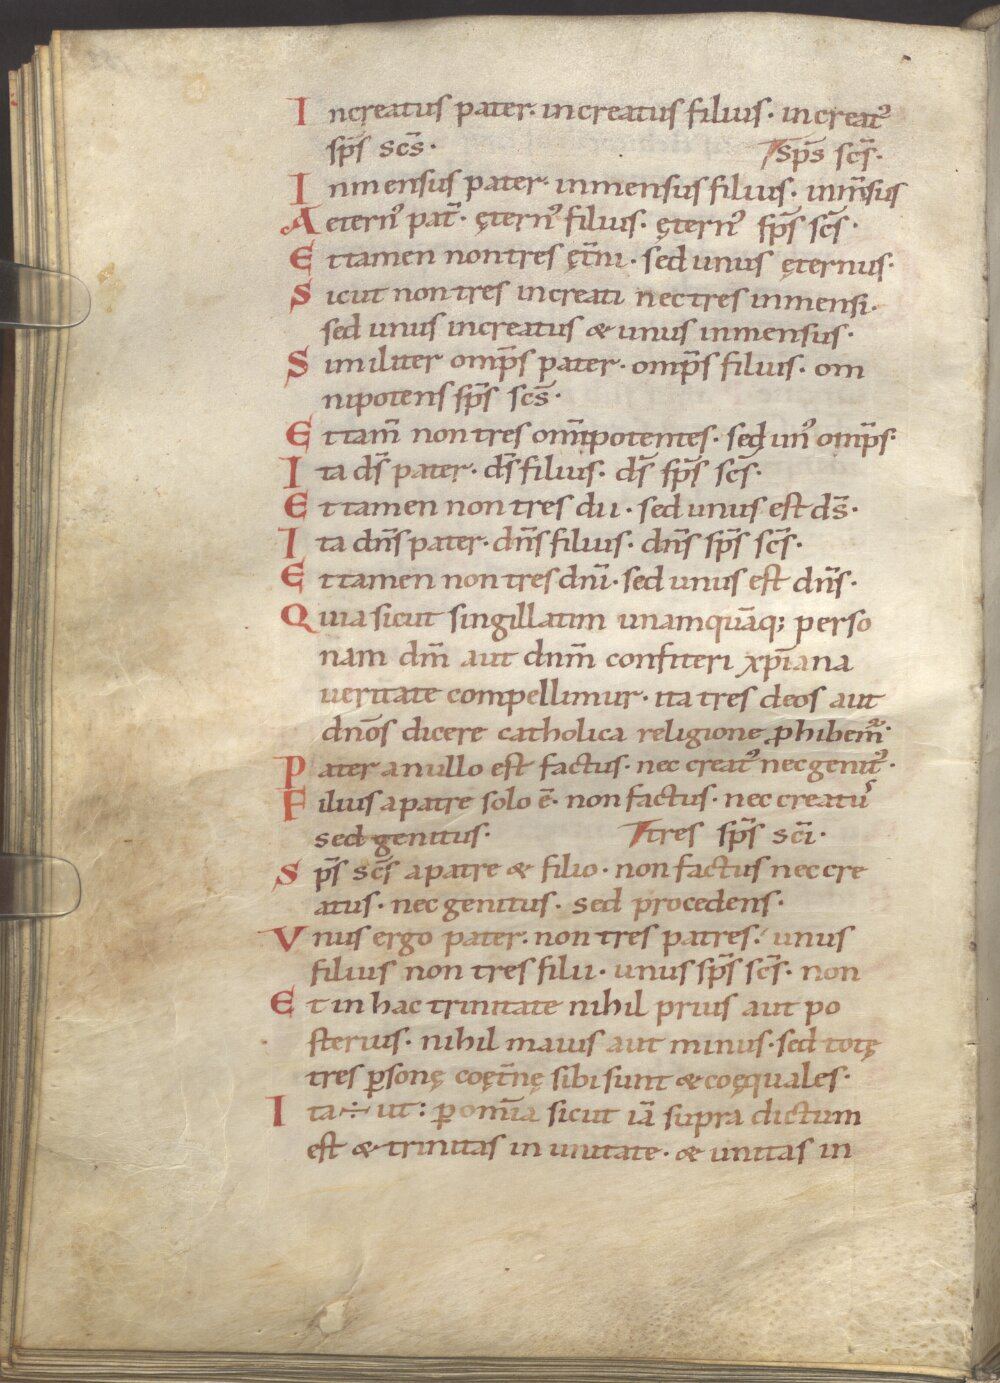 Increatus pater · increatus filius · increatꝰ
sp̄s sc̄s · sp̄s sc̄s ·
Inmensus pater · inmensus filius · inm̄sus
Aeternꝰ pat̄ · ęternꝰ filius · ęternꝰ sp̄s sc̄s ·
Et tamen non tres ęt̄ni · sed unus ęternus ·
Sicut non tres increati nec tres inmensi ·
sed unus increatus & unus inmensus ·
Similiter omp̄s pater · omp̄s filius · om
nipotens sp̄s sc̄s ·
Et tam̄ non tres om̄ipotentes · sed unꝰ omp̄s ·
Ita d̄s pater · d̄s filius · d̄s sp̄s sc̄s ·
Et tamen non tres dii · sed unus est d̄s ·
Ita dn̄s pater · dn̄s filius · dn̄s sp̄s sc̄s ·
Et tamen non tres dn̄i · sed unus est dn̄s ·
Quia sicut singillatim unamquāq; perso
nam dm̄ aut dnm̄ confiteri xp̄iana
ueritate compellimur · ita tres deos aut
dn̄os dicere catholica religione ꝓhibem̄ ·
Pater a nullo est factus · nec creatꝰ nec genitꝰ ·
Filius a patre solo ē · non factus · nec creatuˢ
sed genitus · tres sp̄s sc̄i ·
Sp̄s sc̄s a patre & filio · non factus nec cre
atus · nec genitus · sed procedens ·
Vnus ergo pater · non tres patres · unus
filius non tres filii · unus sp̄s sc̄s · non
Et in hac trinitate nihil prius aut po
sterius · nihil maius aut minus · sed totę
tres ꝑsonę coęt̄nę sibi sunt & coęquales ·
Ita ÷ ut : ꝑ om̄ia sicut iā supra dictum
est & trinitas in unitate · & unitas in